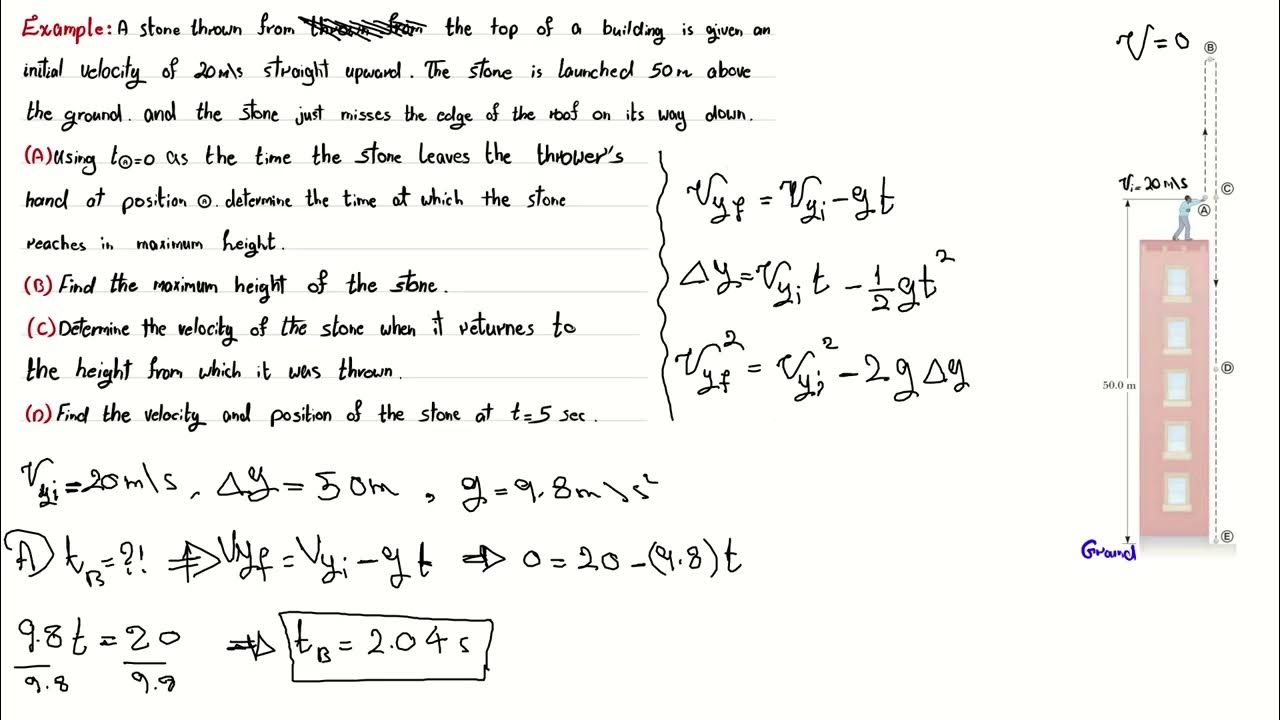 Example: A stone thrown from the top of a building is given an
initial velocity of 20m/s straight upward. The stone is launched 50m above
the ground. and the stone just misses the edge of the roof on its way down.
(A) Using tⒶ=0 as the time the stone leaves the thrower's
hand at position Ⓐ. determine the time at which the stone
reaches in maximum height.
(B) Find the maximum height of the stone.
(C) Determine the velocity of the stone when it returnes to
the height from which it was thrown.
(D) Find the velocity and position of the stone at t=5 sec.
Vyf = Vyi - gt
Δy = Vyi t - 1/2 gt²
Vyf² = Vyi² - 2gΔy
Vyi = 20 m\s , Δy = 50m , g = 9.8 m\s²
A) tB = ?! ⇒ Vyf = Vyi - gt ⇒ 0 = 20 - (9.8)t
9.8t/9.8 = 20/9.8 ⇒ tB = 2.04 s
V = 0
Ⓑ
Vi = 20 m/s
Ⓒ
Ⓐ
50.0 m
Ⓓ
Ⓔ
Ground